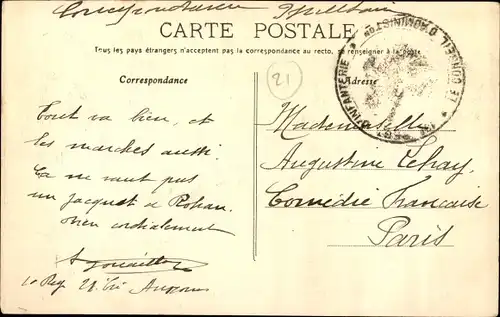 Correspondance Militaire
CARTE POSTALE
Tous les pays étrangers n'acceptent pas la correspondance au recto, se renseigner à la poste
Correspondance
21
Adresse
Tout va bien, et
les marches aussi.
Ça ne vaut pas
un Jacquet de Rohan.
bien cordialement
Mademoiselle
Augustine Lehay,
Comédie Française
Paris
LE CONSEIL D'ADMINISTON
D'INFANTERIE